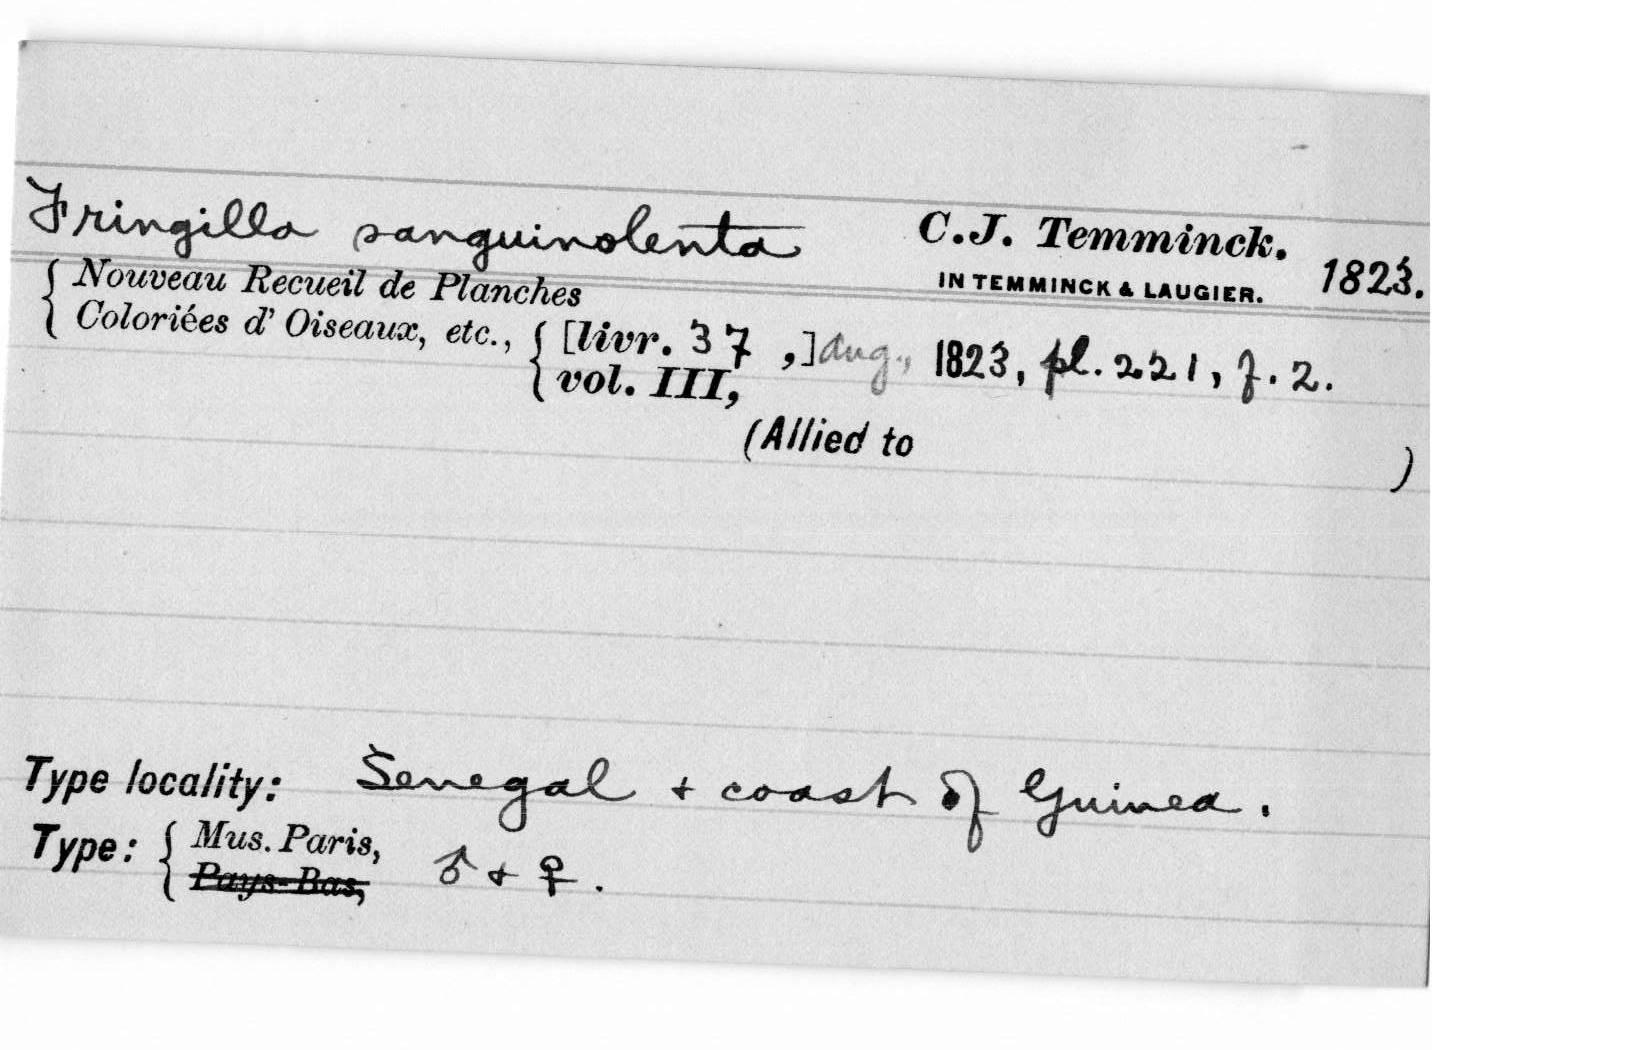 Fringilla sanguinolenta C.J. Temminck. 1823.
IN TEMMINCK & LAUGIER.
Nouveau Recueil de Planches
Coloriées d' Oiseaux, etc., [livr. 37 ,] Aug., 1823, pl. 221, f. 2.
vol. III,
(Allied to )
Type locality: Senegal + coast of Guinea.
Type: Mus. Paris, ♂ + ♀.
Pays-Bas,